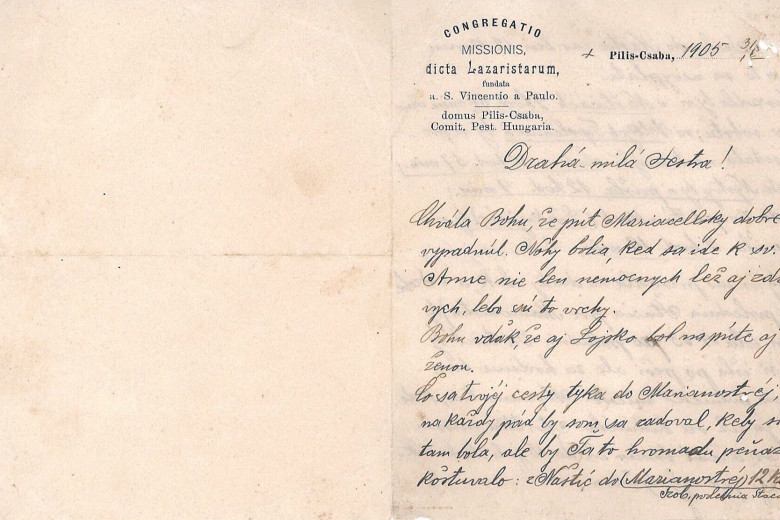 CONGREGATIO
MISSIONIS,
dicta Lazaristarum,
fundata
a. S. Vincentio a Paulo.
domus Pilis-Csaba,
Comit. Pest. Hungaria.
+ Pilis-Csaba, 1905 31/
Drahá-milá Sestra!
Chvála Bohu, že púť Mariacellsky dobre
vypadnúl. Nohy bolia, keď sa ide k sv.
Anne nie len nemocnych lež aj zdr
vych, lebo sú to vrchy.
Bohu vďak, že aj Lojsko bol na púte aj
ženou.
Čo sa tvojéj cesty tyka do Marianostréj,
na každy pád by som sa radoval, keby s
tam bola, ale by Ťa to hromadu peňaz
koštuvalo: z Naštić do (Marianostréj) 12 k
Szob, poslednia Stac